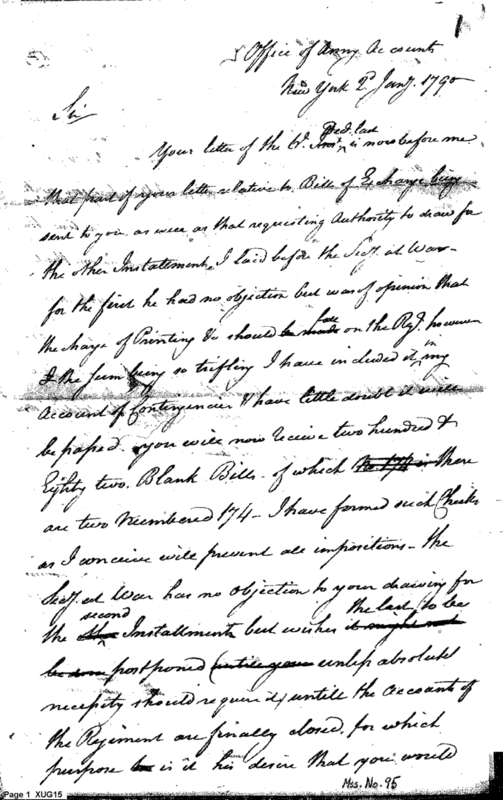 1
Office of Army Accounts
New York 2d Jany. 1790
Sir
Your letter of the 6th. Inst. Decr. last is now before me
that part of your letter relative to Bills of Exchange being
sent to you as were as that requesting Authority to draw for
the other Installments, I laid before the Secy. at War-
for the first he had no objection but was of opinion that
the charge of Printing &c should be made fall on the Regt. however
& the Sum being so trifling I have included it in my
Account of Contingencies & have little doubt it will
be passed. you will now receive two hundred &
Eighty two. Blank Bills - of which there
are two Numbered 174 - I have formed such Checks
as I conceive will prevent all impositions - the
Secy. at War has no objection to your drawing for
the second Installments but wishes it might not the last to be
be done postponed (untill your unless absolute
necessity should require it) untill the Accounts of
the Regiment are finally closed, for which
purpose is it his desire that you would
Mss. No. 95
Page 1 XUG15